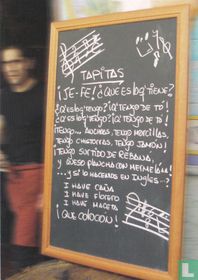 TAPITAS
¡JE-FE! ¿QUÉ ES LO QUE TIENE?
¿QUÉ ES LO QUE TENGO? ¡QUÉ TENGO DE TÓ!
¿QUÉ ES LO QUE TENGO? ¡QUÉ TENGO DE TÓ!
¡TENGO... ANCHOAS, TENGO MORCILLAS,
TENGO CHISTORRAS, TENGO JAMÓN!
¡TENGO SURTIDO DE REBAÑA,
Y QUESO PLANCHA CON MERMELÁ!
...Y SI LO HACEMOS EN INGLÉS...?
I HAVE CAÑA
I HAVE FLORERO
I HAVE MACETA
¡QUE COLOCÓN!